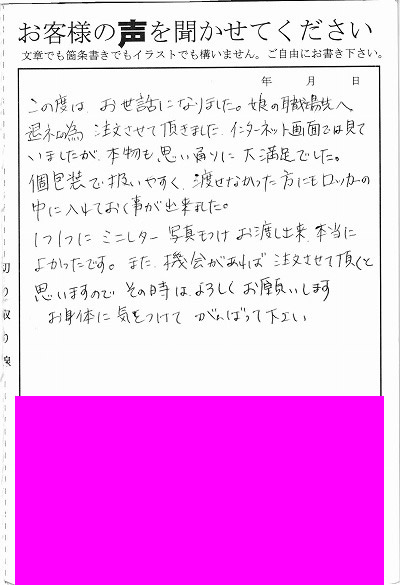 お客様の声を聞かせてください
文章でも箇条書きでもイラストでも構いません。ご自由にお書き下さい。
年 月 日
この度は、お世話になりました。娘の職場先へ
退社の為 注文させて頂きました。インターネット画面では見て
いましたが、本物も、思い通りに 大満足でした。
個包装で扱いやすく、渡せなかった方にもロッカーの
中に入れておく事が出来ました。
1つ1つに ミニレター 写真もつけ お渡し出来、本当に
よかったです。また、機会があれば 注文させて頂くと
思いますので その時は、よろしく お願いします
お身体に 気をつけて がんばって下さい
切り取り線